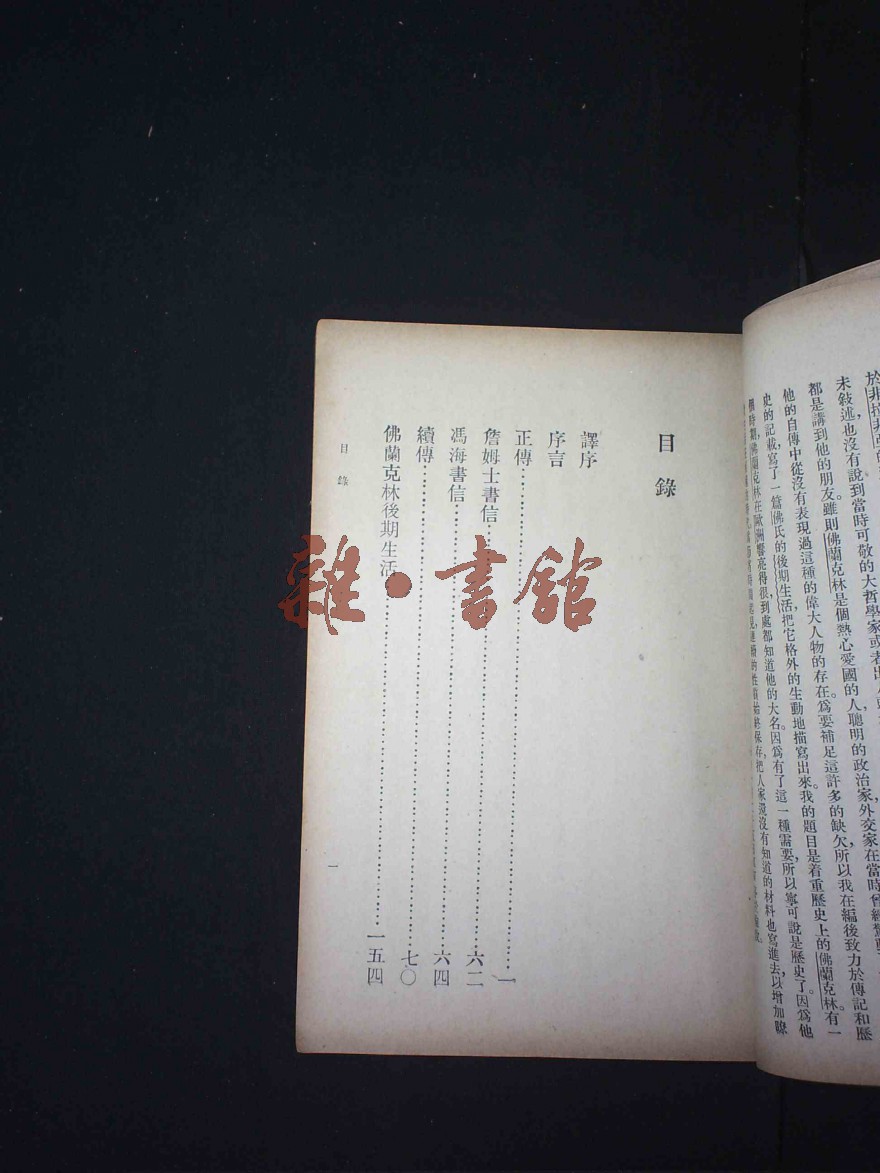 都是講到他的朋友。雖則佛蘭克林是個熱心愛國的人，聰明的政治家，外交家在當時曾經
未敍述，也沒有說到當時可敬的大哲學家或者
他的自傳中從沒有表現過這種的偉大人物的存在。爲要補足這許多的缺欠，所以我在編後致力於傳記和歷
史的記載，寫了一篇佛氏的後期生活，把它格外的生動地描寫出來。我的題目是着重歷史上的佛蘭克林，有一
時期佛蘭克林在歐洲響亮得很，到處都知道他的大名。因爲有了這一種需要，所以寧可說是歷史了。因爲他
保存，把人家還沒有知道的材料也寫進去，以增加瞭
目錄
譯序
序言
正傳……一
詹姆士書信……六二
馮海書信……六四
續傳……七〇
佛蘭克林後期生活……一五四
目錄
一
雜·書館